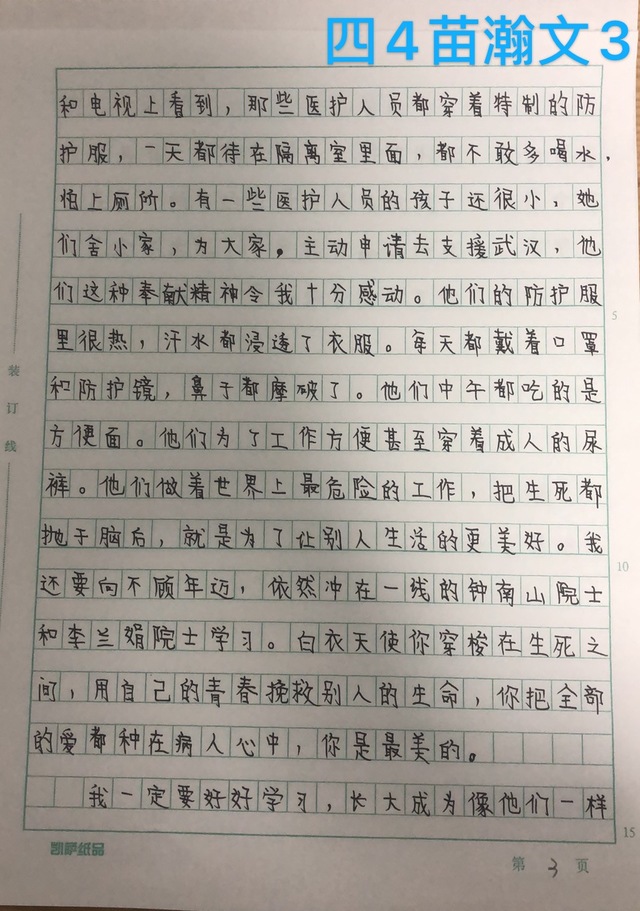 四4苗瀚文3
和电视上看到，那些医护人员都穿着特制的防
护服，一天都待在隔离室里面，都不敢多喝水，
怕上厕所。有一些医护人员的孩子还很小，她
们舍小家，为大家。主动申请去支援武汉，他
们这种奉献精神令我十分感动。他们的防护服
里很热，汗水都浸透了衣服。每天都戴着口罩
和防护镜，鼻于都摩破了。他们中午都吃的是
方便面。他们为了工作方便甚至穿着成人的尿
裤。他们做着世界上最危险的工作，把生死都
抛于脑后，就是为了让别人生活的更美好。我
还要向不顾年迈，依然冲在一线的钟南山院士
和李兰娟院士学习。白衣天使你穿梭在生死之
间，用自己的青春挽救别人的生命，你把全部
的爱都种在病人心中，你是最美的。
我一定要好好学习，长大成为像他们一样
装
订
线
5
10
15
凯萨纸品
第 3 页